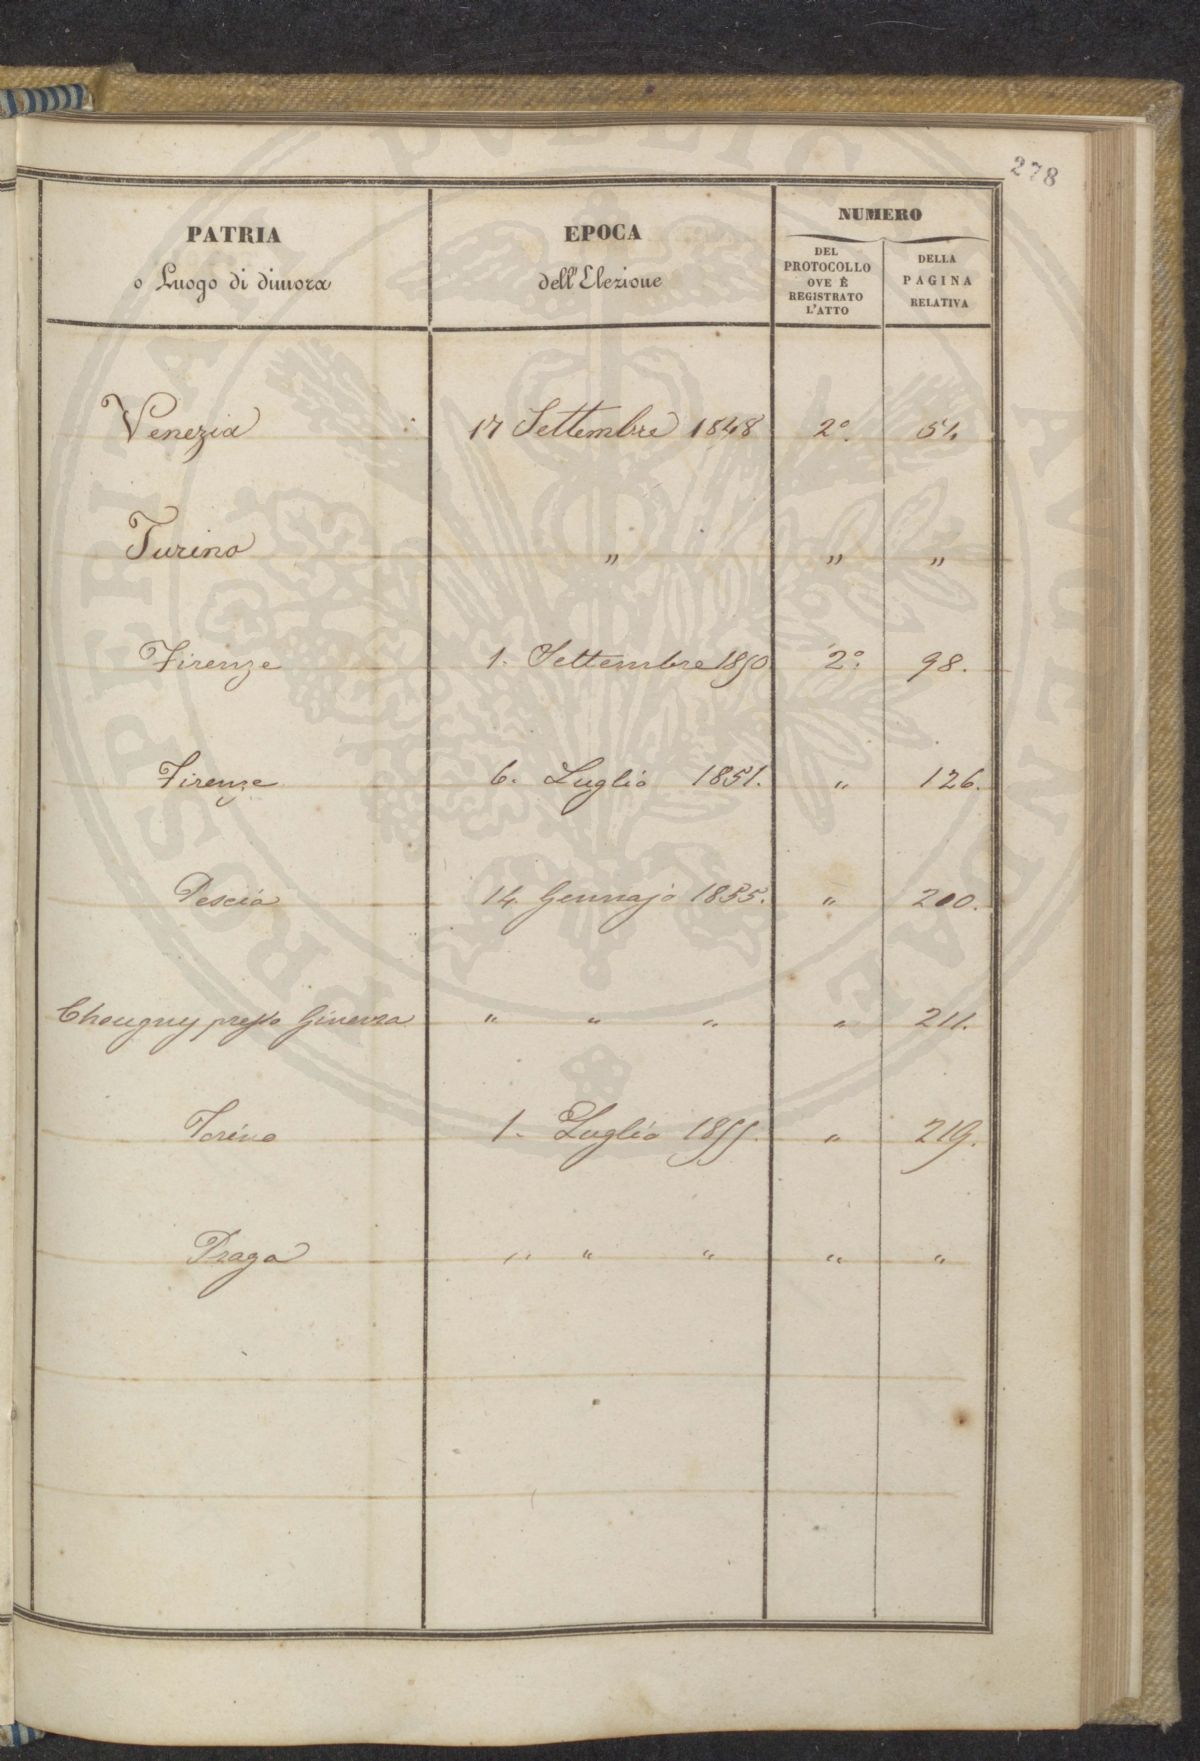 278
PATRIA
o Luogo di dimora
EPOCA
dell'Elezione
NUMERO
DEL
PROTOCOLLO
OVE È
REGISTRATO
L'ATTO
DELLA
PAGINA
RELATIVA
Venezia 17 Settembre 1848 2°. 51.
Turino " " "
Firenze 1. Settembre 1850 2°. 98.
Firenze 6. Luglio 1851. " 126.
Pescia 14. Gennajo 1855. " 200.
Chougny presso Ginevra " " " " 211.
Torino 1. Luglio 1855. " 219.
Praga " " " " "
PROSPERITATI PUBLICAE AUGENDAE